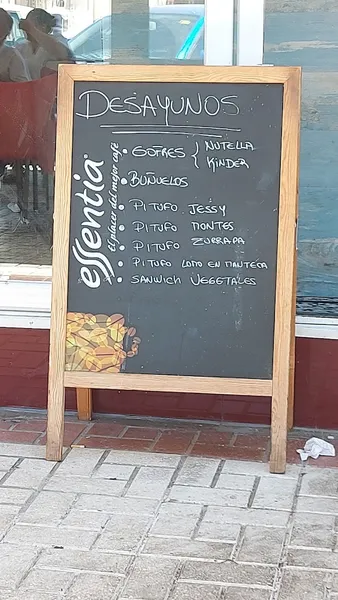 DESAYUNOS
• GOFRES { NUTELLA
KINDER
• BUÑUELOS
• PITUFO JESSY
• PITUFO MONTES
• PITUFO ZURRAPA
• PITUFO LOMO EN MANTECA
• SANWICH VEGETALES
essentia
el placer del mejor café